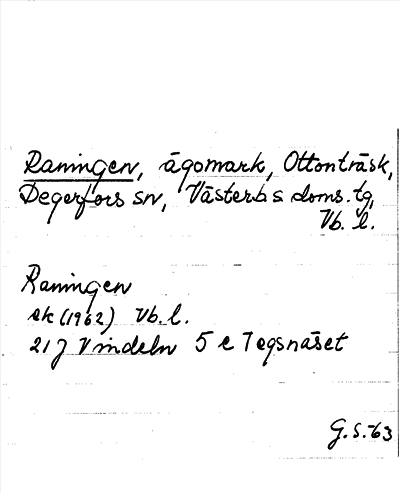 Raningen, ägomark, Ottonträsk,
Degerfors sn, Västerb s doms. tg,
Vb. l.
Raningen
ek (1962) Vb. l.
21 J Vindeln 5 e Tegsnäset
G. S. -63